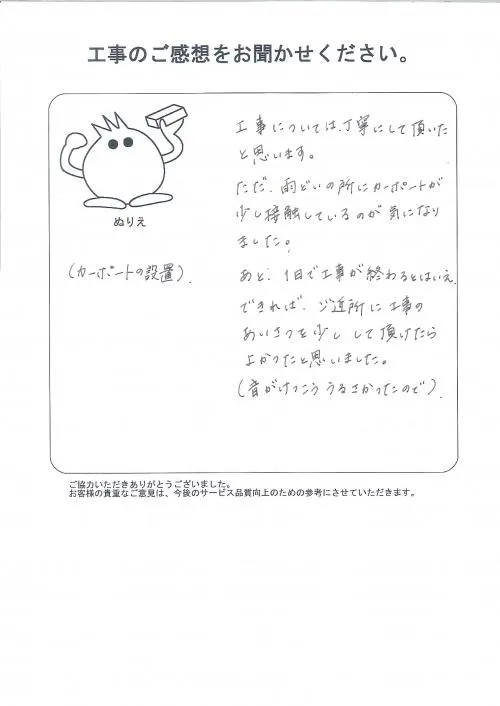 工事のご感想をお聞かせください。
工事については、丁寧にして頂いた
と思います。
ただ、雨どいの所にカーポートが
少し接触しているのが気になり
ました。
ぬりえ
(カーポートの設置).
あと、1日で工事が終わるとはいえ、
できれば、ご近所に工事の
あいさつを少し して頂けたら
よかったと思いました。
(音がけっこううるさかったので).
ご協力いただきありがとうございました。
お客様の貴重なご意見は、今後のサービス品質向上のための参考にさせていただきます。